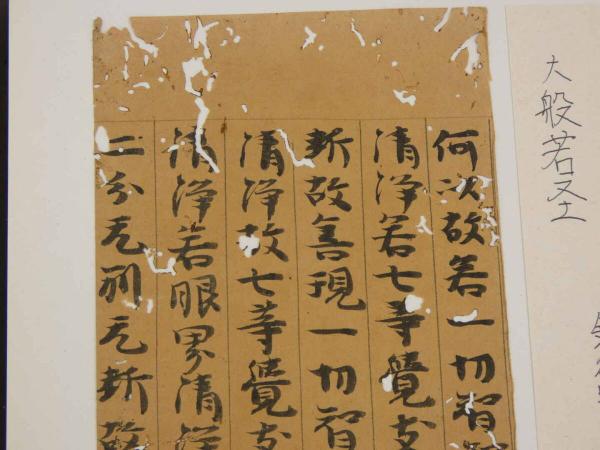 大般若圣
何以故若一切智
清净若七等覺支
断故善現一切智
清净故七等覺支
清净若眼界清净
二分无別无断故